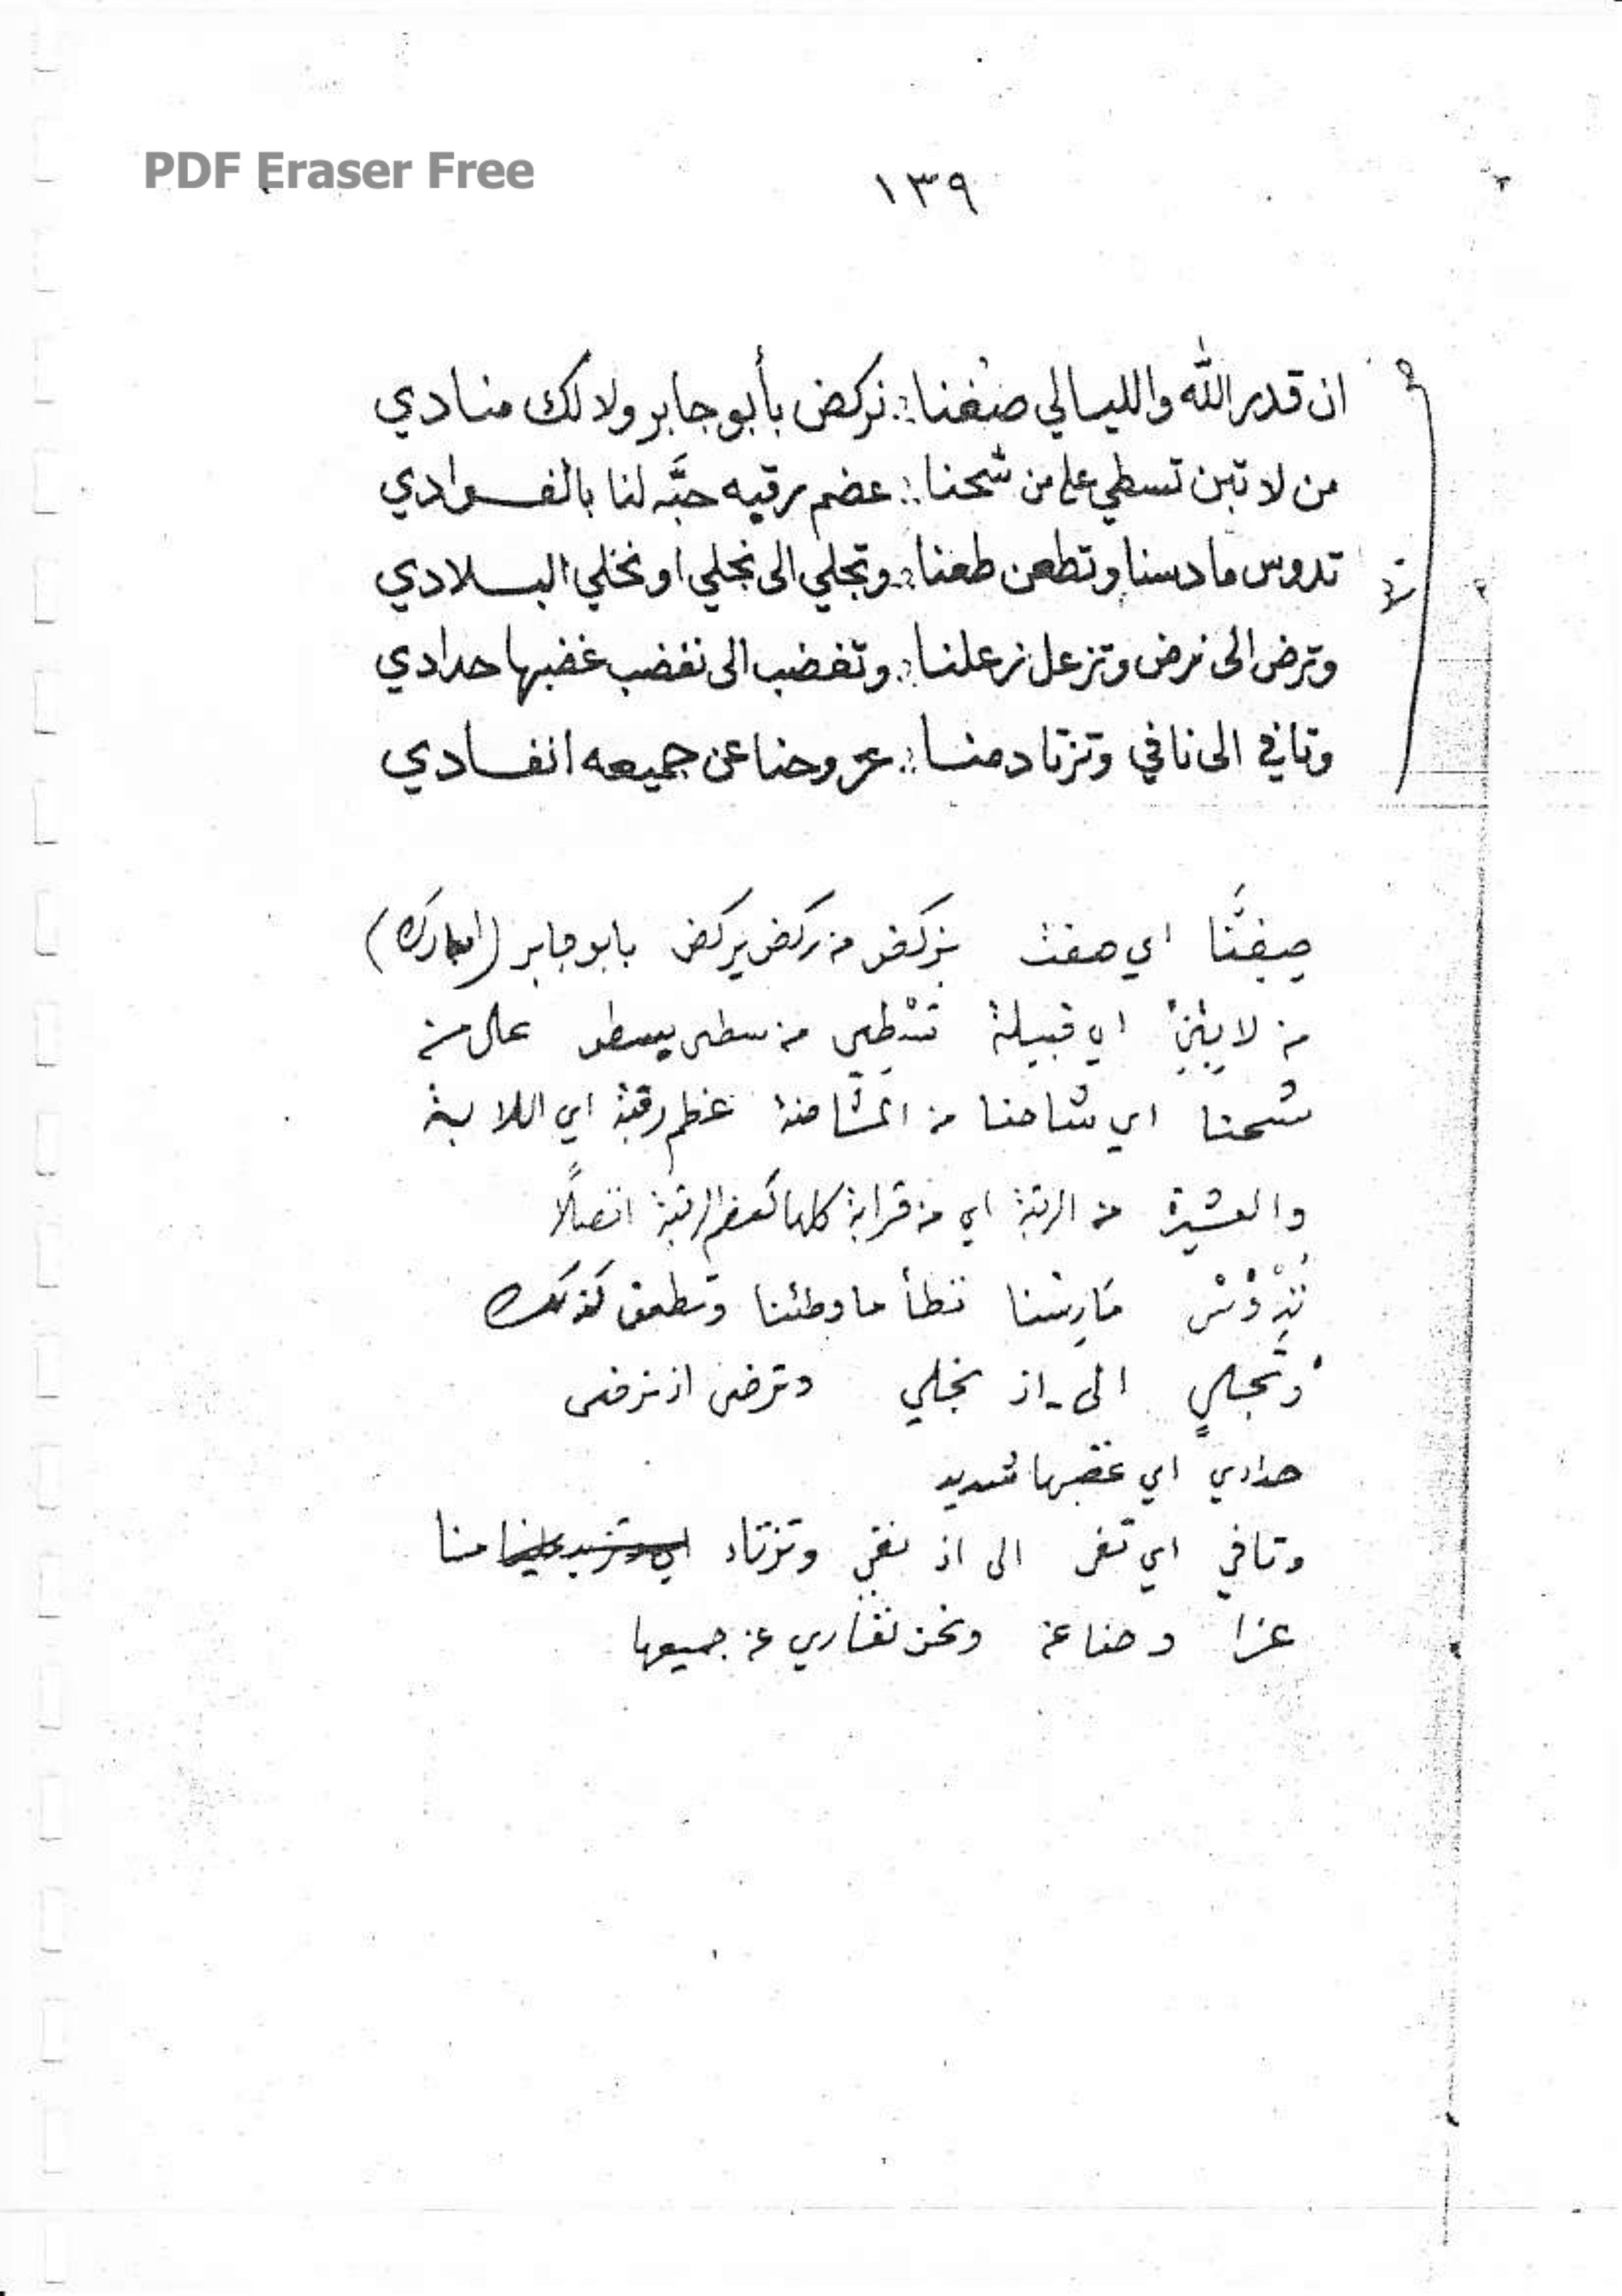 PDF Eraser Free
١٣٩
ان قدر الله والليالي صفنا نركض بأبو جابر ولا لك منادي
من لا تبن تسطي على من شحنا عضم رقبه حبَّه لنا بالفوادي
تدوس ما دسنا وتطعن طعنا وتجلي الى نجلي او نخلي البلادي
وترض الى نرض وتزعل زعلنا وتغضب الى نغضب غضبها حدادي
وتافي الى نافي وتزتاد منا عز وحنا عن جميعه انفادي
اي صفت نركض من ركض يركض بابو جابر
من اي قبيلة تسطي من سطى يسطو على من
شحنا اي شاحنا من المشاحنة عظم رقبة اي اللابة
والعشيرة من الرقبة اي من قرابة كلها كعظم الرقبة اتصالًا
نطأ ما وطئنا وتطعن كذلك
وتجلي الى - اذ نجلي وترضى اذ نرضى
حدادي اي غضبها شديد
وتافي اي تفي الى اذ نفي وتزتاد منا
عزا وحنا عن ونحن نفادي عن جميعها